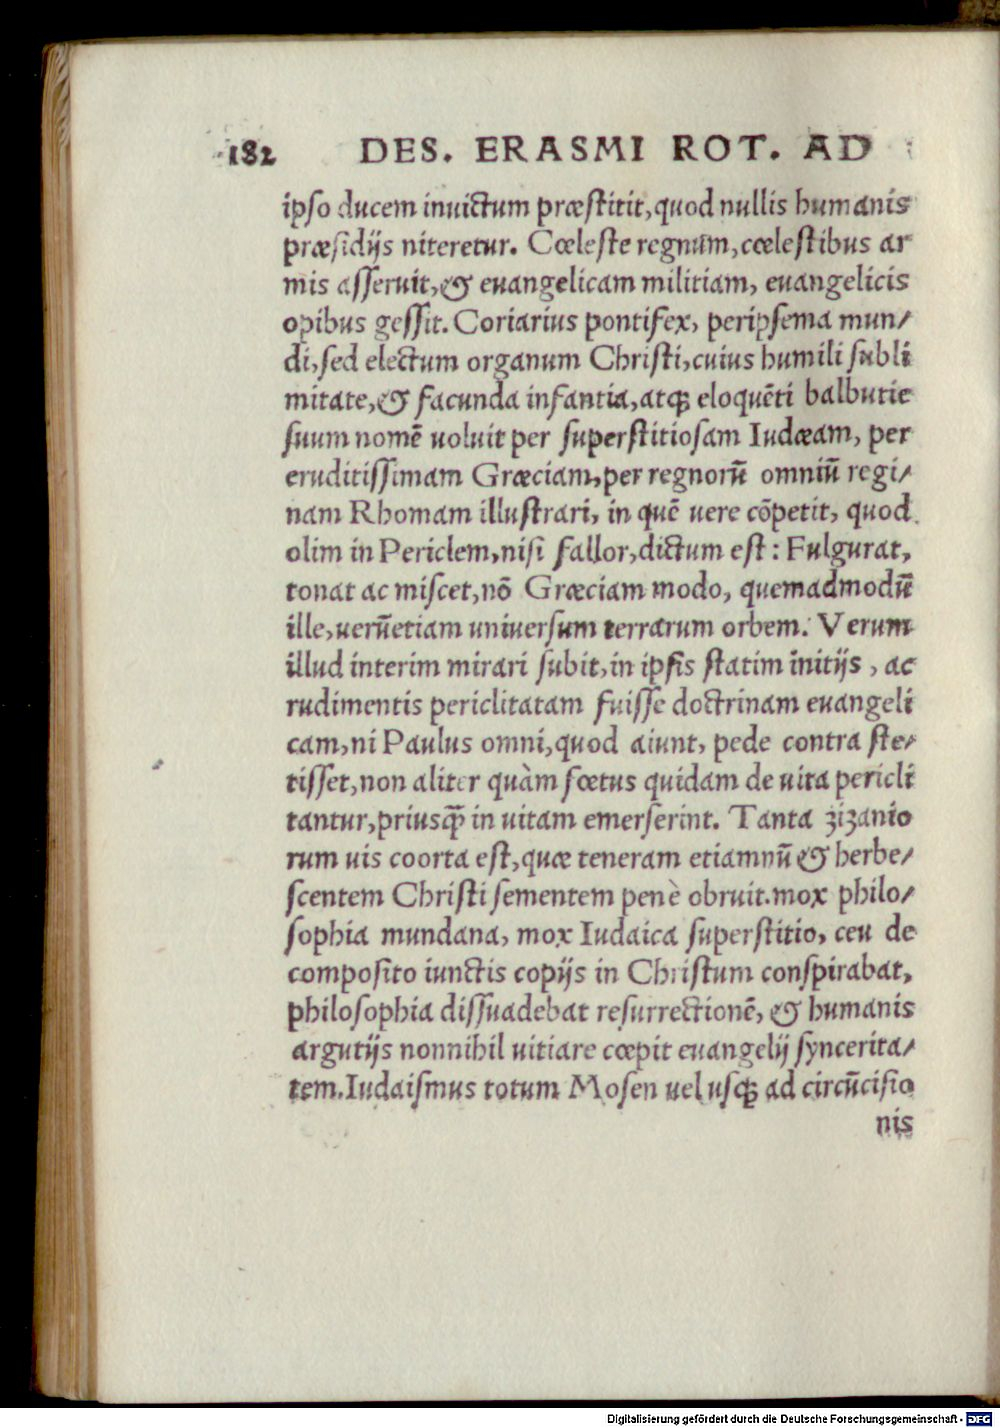 182 DES. ERASMI ROT. AD
ipſo ducem inuictum præſtitit, quod nullis humanis
præſidijs niteretur. Cœleſte regnum, cœleſtibus ar
mis aſſeruit, & euangelicam militiam, euangelicis
opibus geſſit. Coriarius pontifex, peripſema mun/
di, ſed electum organum Chriſti, cuius humili ſubli
mitate, & facunda infantia, atq; eloquēti balbutie
ſuum nomē uoluit per ſuperſtitioſam Iudæam, per
eruditiſſimam Græciam, per regnorū omniū regi/
nam Rhomam illuſtrari, in quē uere cōpetit, quod
olim in Periclem, niſi fallor, dictum eſt: Fulgurat,
tonat ac miſcet, nō Græciam modo, quemadmodū
ille, uerūetiam uniuerſum terrarum orbem. Verum
illud interim mirari ſubit, in ipſis ſtatim initijs, ac
rudimentis periclitatam fuiſſe doctrinam euangeli
cam, ni Paulus omni, quod aiunt, pede contra ſte/
tiſſet, non aliter quàm fœtus quidam de uita pericli
tantur, priusq̄ in uitam emerſerint. Tanta zizanio
rum uis coorta eſt, quæ teneram etiamnū & herbe/
ſcentem Chriſti ſementem penè obruit. mox philo/
ſophia mundana, mox Iudaica ſuperſtitio, ceu de
compoſito iunctis copijs in Chriſtum conſpirabat,
philoſophia diſſuadebat reſurrectionē, & humanis
argutijs nonnihil uitiare cœpit euangelij ſyncerita/
tem. Iudaiſmus totum Moſen uel uſq; ad circūciſio
nis
Digitalisierung gefördert durch die Deutsche Forschungsgemeinschaft - DFG